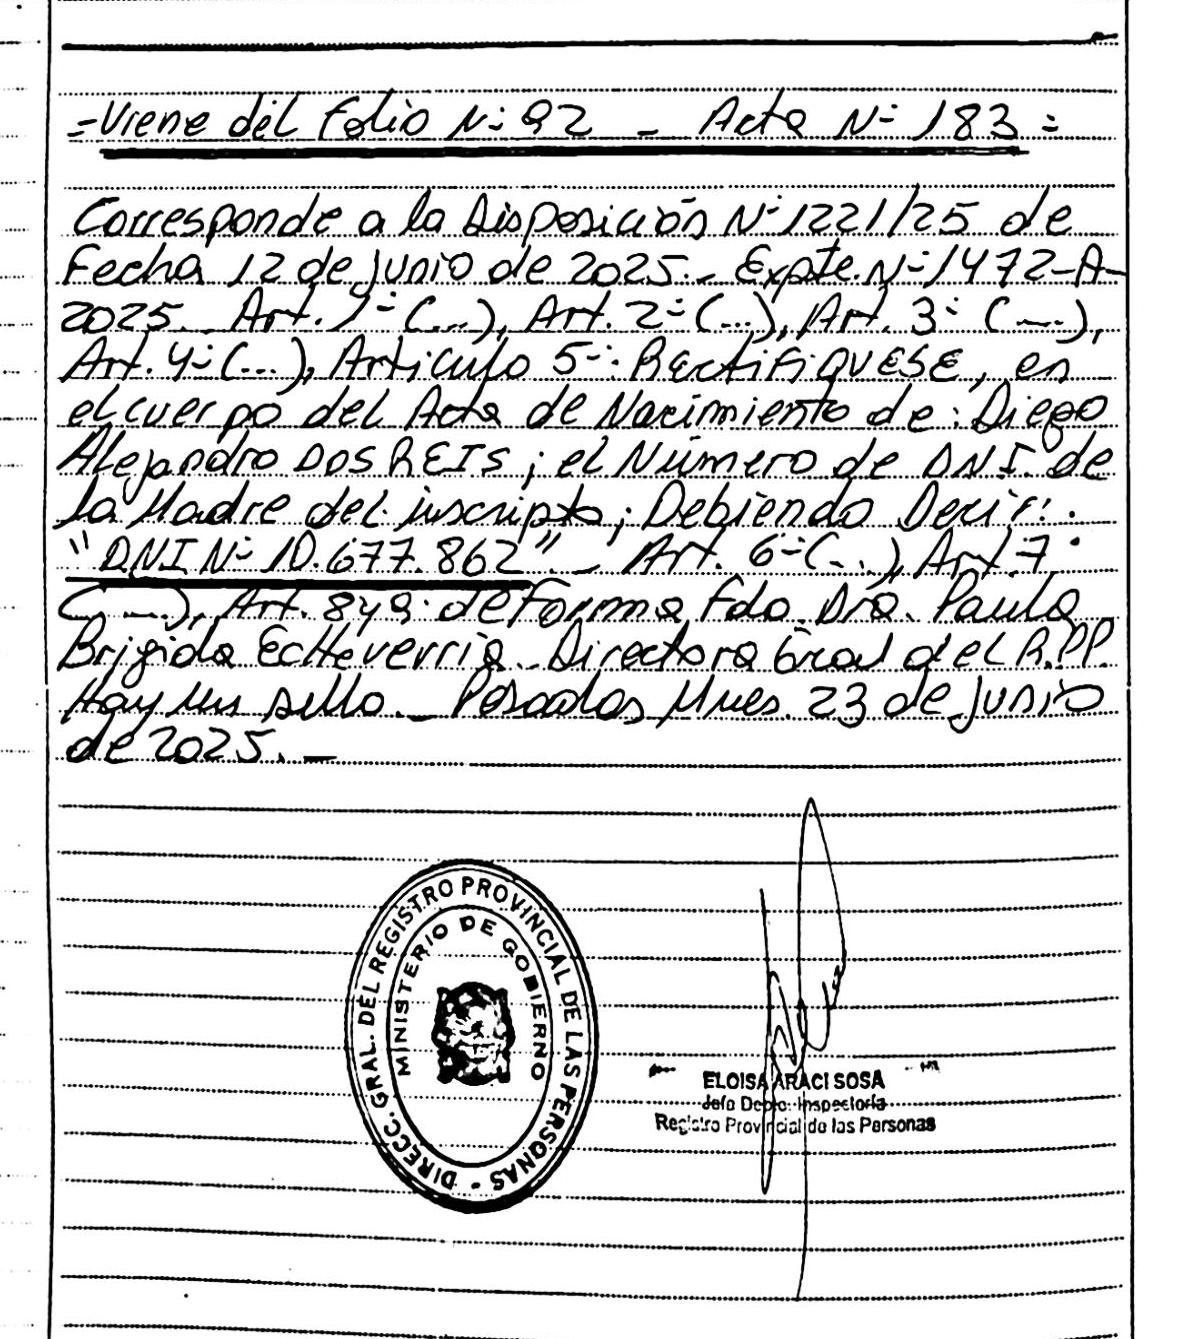 =Viene del folio Nº 92 - Acta Nº 183=
Corresponde a la Disposición Nº 1221/25 de
Fecha 12 de junio de 2025.- Expte. Nº 1472-A-
2025. Art. 1º (...), Art. 2º (...), Art. 3º (...),
Art. 4º (...), Articulo 5º: RectiFiQUESE, en
el cuerpo del Acta de Nacimiento de: Diego
Alejandro DOS REIS; el Número de DNI. de
la Madre del inscripto; Debiendo Decir:
"DNI Nº 10.677.862".- Art. 6º (...), Art. 7º
(...), Art. 8 y 9: de Forma Fdo. Dra. Paula
Brigida EcHeverria. Directora Gral del R.PP.
Hay un sello.- Posadas Mnes. 23 de junio
de 2025.-
DIRECC. GRAL. DEL REGISTRO PROVINCIAL DE LAS PERSONAS -
MINISTERIO DE GOBIERNO
ELOISA ARACI SOSA
Jefa Depto. Inspectoría
Registro Provincial de las Personas